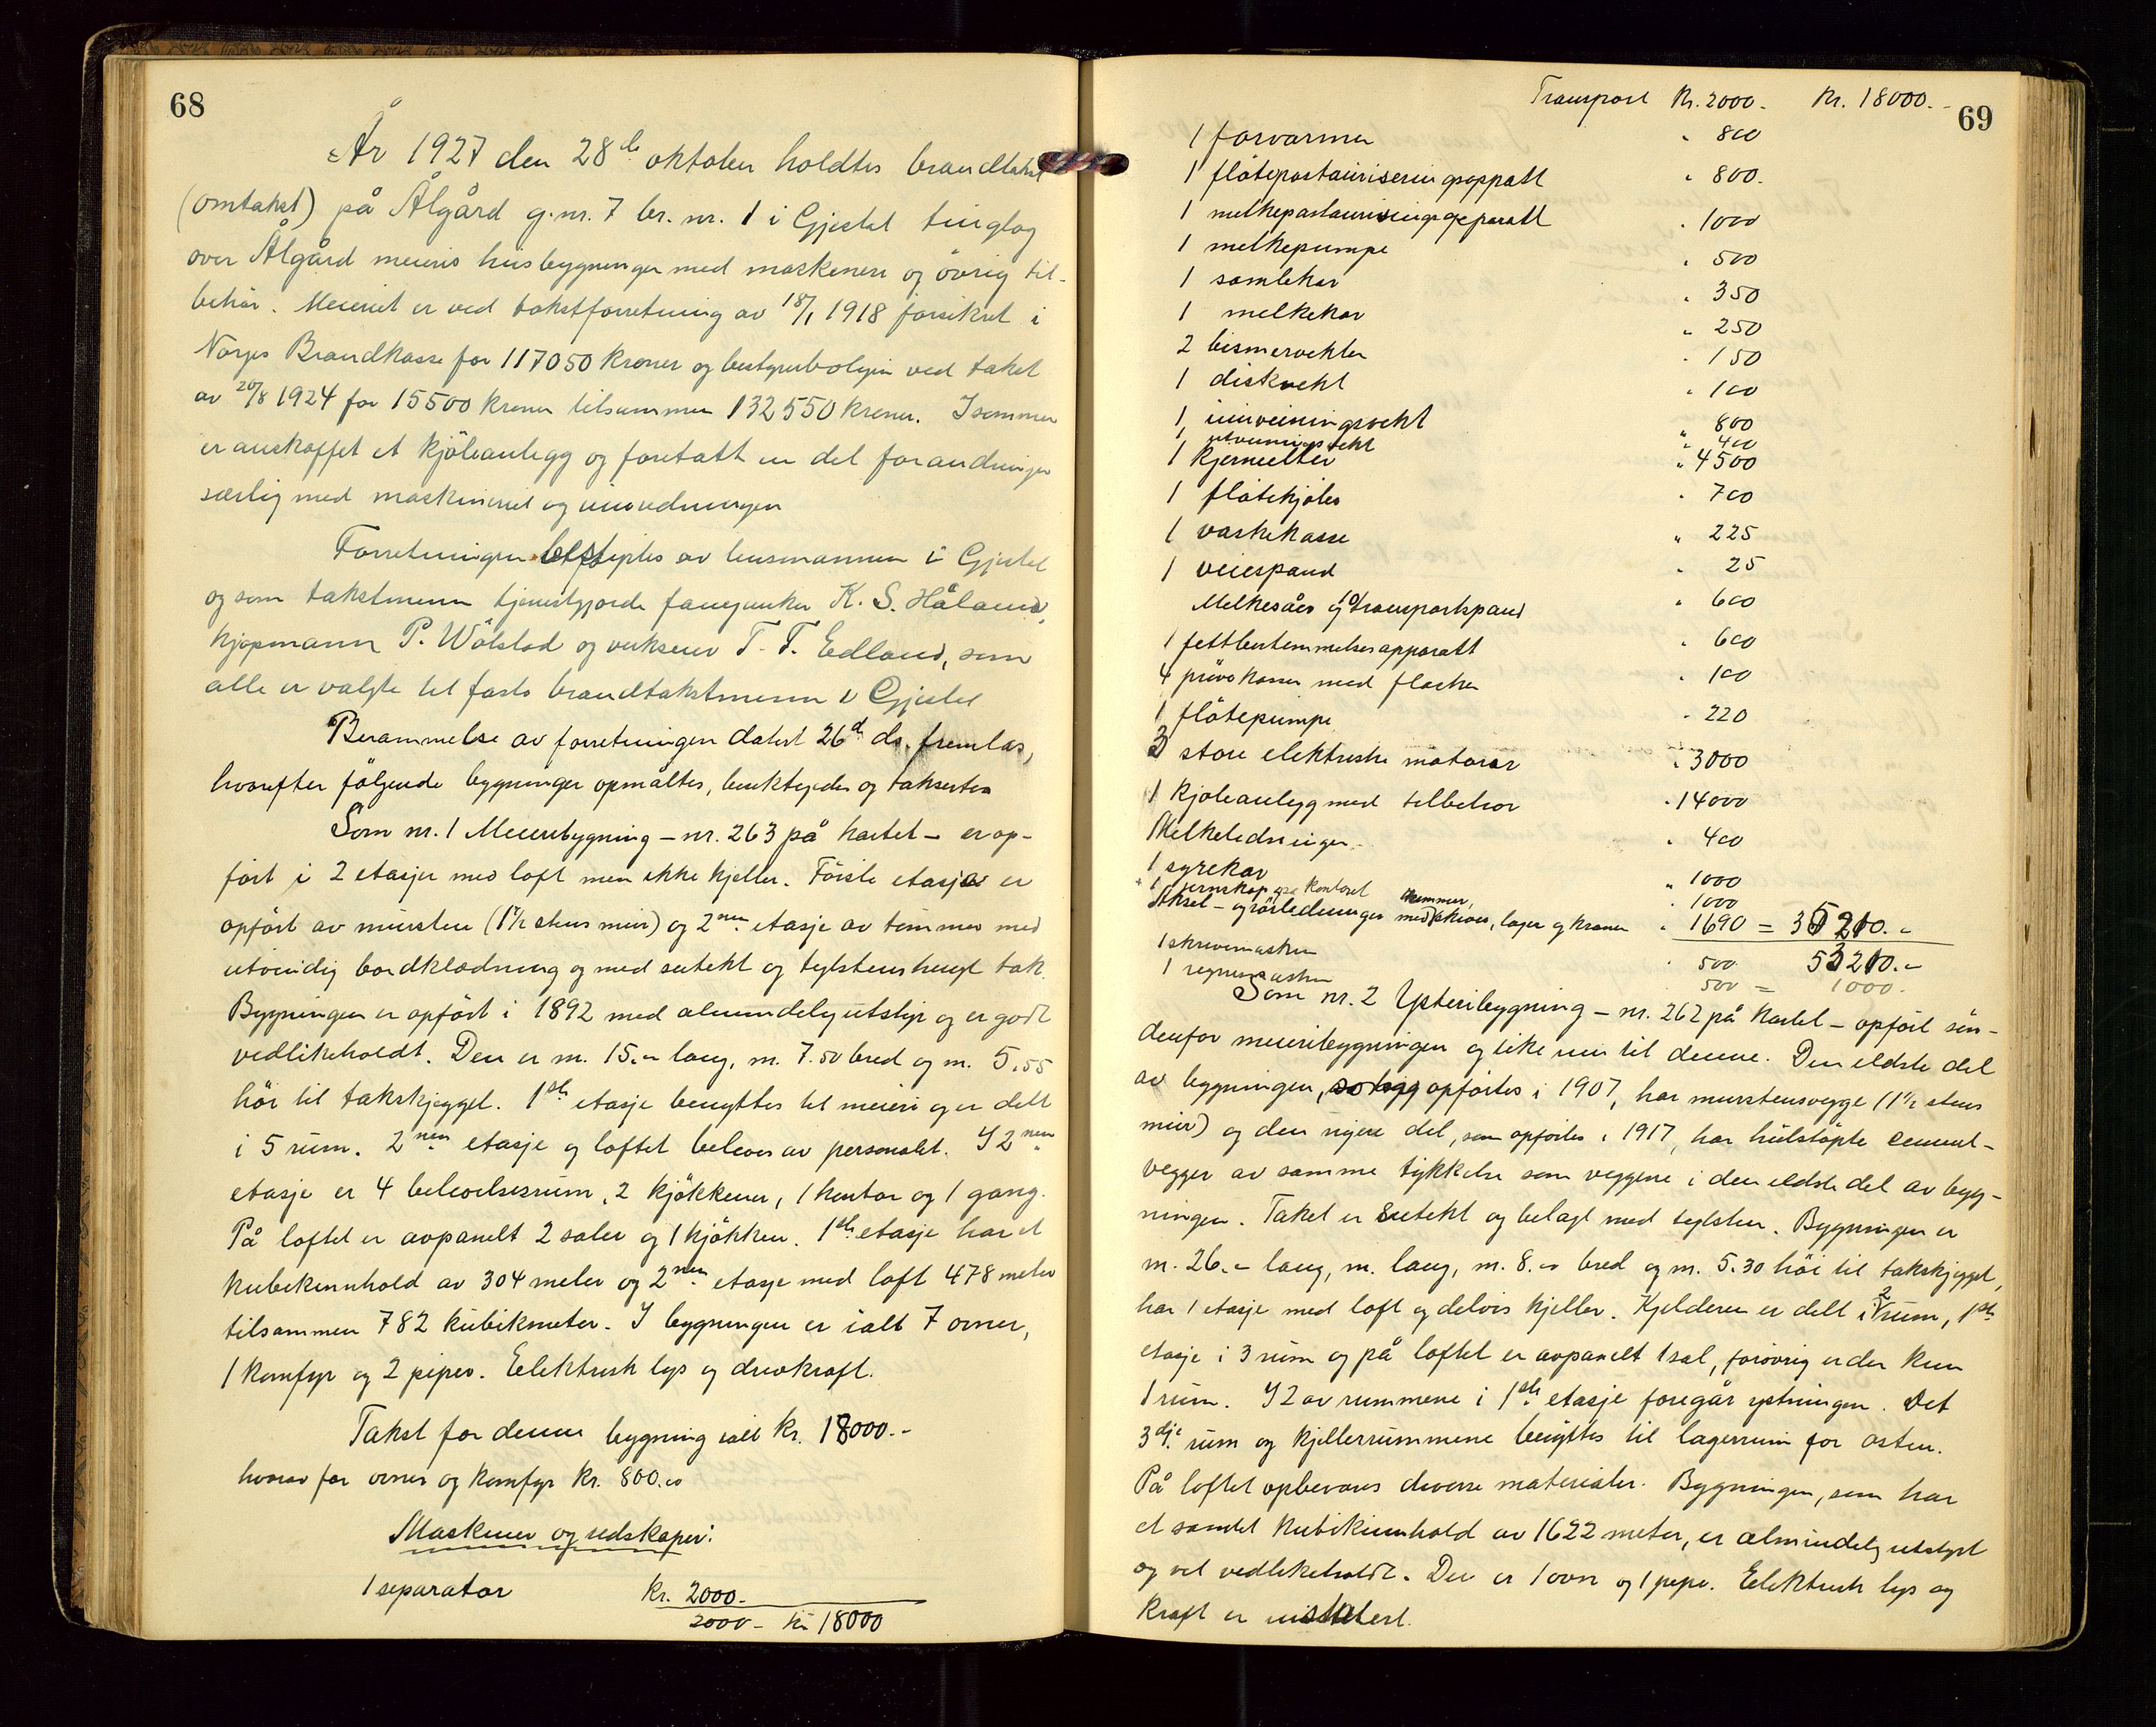 68
År 1927 den 28de oktober holdtes brandtakst
(omtakst) på Ålgård g.nr. 7 br. nr. 1 i Gjestal tinglag
over Ålgård meieris husbygninger med maskineri og övrig til-
behör. Meieriet er ved takstforretning av 18/1 1918 forsikret i
Norges Brandkasse for 117050 kroner og bestyrerboligen ved takst
av 20/8 1924 for 15500 kroner tilsammen 132550 kroner. I sommer
er anskaffet et kjöleanlegg og foretatt en del forandringer
særlig med maskineriet og innredningen
Forretningen bestyrtes av lensmannen i Gjestal
og som takstmenn tjenestgjorde fanejunker K. S. Håland,
kjøpmann P. Wölstad og verkseier T. T. Edland, som
alle er valgte til faste brandtakstmenn i Gjestal
Berammelse av forretningen datert 26d ds. fremlas,
hvorefter fölgende bygninger opmåltes, besiktigedes og taksertes
Som nr. 1 Meieribygning – nr. 263 på kartet – er op-
fört i 2 etasjer med loft men ikke kjeller. Förste etasje er
opfört av mursten (1½ stens mur) og 2nen etasje av tömmer med
utvendig bordklædning og med sutekt og teglstenshengt tak.
Bygningen er opfört i 1892 med almindelig utstyr og er godt
vedlikeholdt. Den er m. 15.– lang, m. 7.50 bred og m. 5,55
höi til takskjegget. 1ste etasje benyttes til meieri og er delt
i 5 rum. 2nen etasje og loftet beboes av personalet. I 2nen
etasje er 4 beboelsesrum, 2 kjökkener, 1 kontor og 1 gang.
På loftet er avpanelt 2 saler og 1 kjökken. 1ste etasje har et
kubikinnhold av 304 meter og 2nen etasje med loft 478 meter
tilsammen 782 kubikmeter. I bygningen er ialt 7 ovner,
1 komfyr og 2 piper. Eelektrisk lys og drivkraft.
Takst for denne bygning ialt kr. 18000.–
hvorav for ovner og komfyr kr. 800.00
Maskiner og redskaper:
1 separator kr. 2000.–
2000.– kr 18000
69
Transport Kr. 2000.– Kr. 18000.–
1 forvarmer " 800
1 flötepastauriseringsapparatt " 800.
1 melkepastauriseringsapparatt " 1000
1 melkepumpe " 500
1 samlekar " 350
1 melkekar " 250
2 bismervekter " 150
1 diskvekt " 100
1 innveiningsvekt " 800
1 utveiningsvekt " 400
1 kjerneelter " 4500
1 flötekjöler " 700
1 vaskekasse " 225
1 veiespand " 25
Melkesåer og 10 transportspand " 600
1 fettbestemmelsesapparatt " 600
4 prövekasser med flasker " 100
1 flötepumpe " 220
3 store elektriske motorer " 3000
1 kjöleanlegg med tilbehör " 14000
Melkeledninger " 400
1 syrekar " 1000
1 jernskap på kontoret " 1000
Aksel- og rörledninger med remmer, skiver, lager og kraner " 1690 = 35210.–
53210.–
1 skrivemaskin " 500
1 regnemaskin 500 = 1000.
Som nr. 2 Ysteribygning – nr. 262 på kartet – opfört sön-
denfor meieribygningen og like inn til denne. Den eldste del
av bygningen, opförtes i 1907, har murstensvegge (1½ stens
mur) og den nyere del, som opförtes i 1917, har helstöpte cement-
vegger av samme tykkelse som veggene i den eldste del av byg-
ningen. Taket er sutekt og belagt med teglsten. Bygningen er
m. 26.– lang, m. lang, m. 8.– bred og m. 5.30 höi til takskjegget,
har 1 etasje med loft og delvis kjeller. Kjelderen er delt i 2 rum, 1ste
etasje i 3 rum og på loftet er avpanelt 1 sal, forövrig er der kun
1 rum. I 2 av rummene i 1ste etasje foregår ystningen. Det
3dje rum og kjellerrummene benyttes til lagerrum for osten.
På loftet opbevares diverse materialer. Bygningen, som har
et samlet kubikinnhold av 1622 meter, er almindelig utstyrt
og vel vedlikeholdt. Der er 1 ovn og 1 pipe. Eelektrisk lys og
kraft er installert.